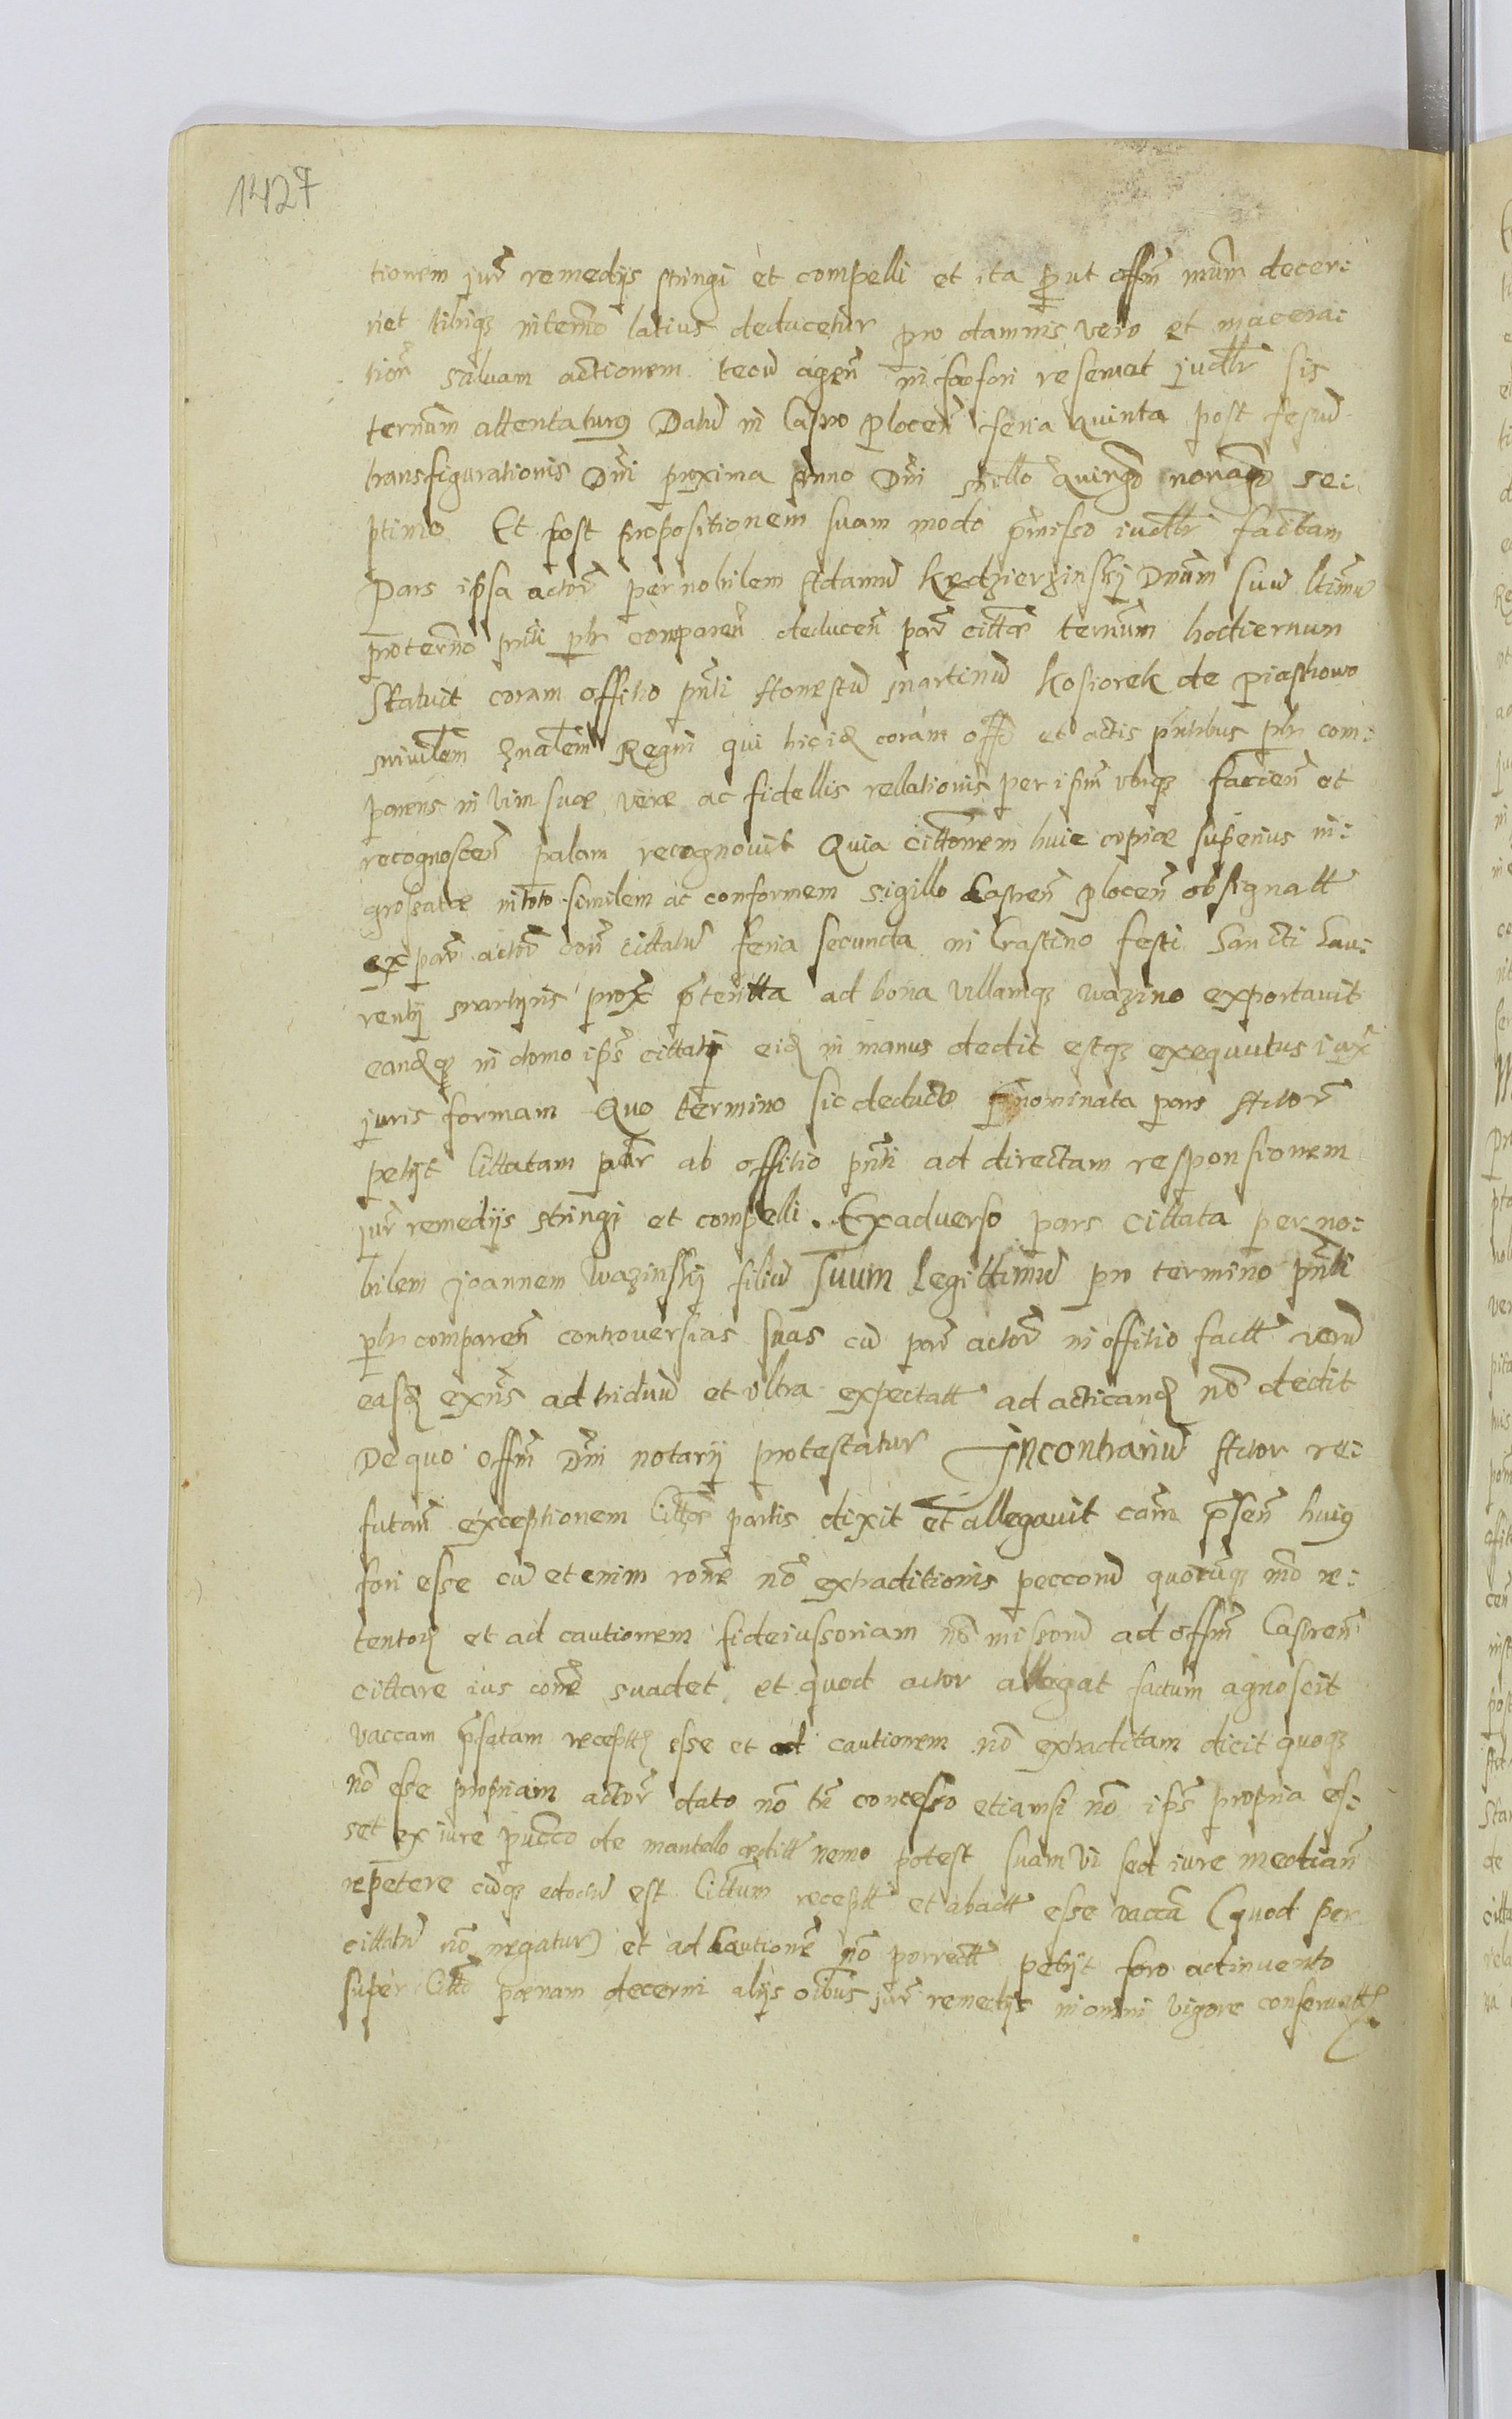 1427
tionem jur remedijs stringi et compelli et ita put offm nrum decer:
net tibiqz in termo latius deducetur pro damnis vero et macera:
tion salvam actionem tecu agen in foro fori reservat judtlr sis
ternum attentaturus Datu in Castro plocen feria quinta post festu
transfigurationis Dni proxima Anno Dni millo quingo nonago se:
ptimo Et post propositionem suam modo pmisso iudtlr factam
Pars ipsa actor per nobilem Adamu Kędzierzinskij Dnum suu ltimu
pro termo pnti plr comparen deducen par cittae ternum hodiernum
Statuit coram offitio pnti Honestu Martinu Kosiorek de piastowo
mirlem gnalem Regni qui hic id coram offo et actis pntibus plr com:
parens in vim suae verae ac fidellis rellationis per ipm ubiqz facien et
recognoscen palam recognovit Quia cittonem huic copiae superius in:
grossatae in toto similem ac conformem sigillo Castren plocen obsignatt
ex par actor con cittatu feria secunda in Crastino festi Sancti Lau:
rentij martyris prox pteritta ad bona villamqz wazino exportavit
eandqz in domo ips cittatj eid in manus dedit estqz exequutus iuxa
juris formam Quo termino sic deducto pnominata pars Actor
petijt Cittatam par ab offitio pnti ad directam responsionem
jur remedijs stringi et compelli. Ex adverso pars cittata per no:
bilem Joannem Wazinskij filiu suum legittimu pro termino pnti
plr comparen controversias suas cu par actor in offitio factt veru
easd exns ad triduu et ultra expectatt ad acticand no dedit
De quo offm Dni notarij protestatur In contrariu Actor re:
futan exceptionem Cittae partis dixit et allegavit cam psen huius
fori esse cu etenim rone no extraditionis peccoru quocuqz mo re:
tentor et ad cautionem fideiussoriam no missoru ad offm Castren
cittare ius cone suadet, et quod actor allegat factum agnoscit
vaccam psatam receptt esse et ad cautionem no extraditam dicit quoqz
no esse propriam actor dato no tn concesso etiamsi no ips propria es:
set ex iure pucco de mantello nemo potest suam vi sed iure median
repetere cuqz edoctu est Cittum receptt et abactt esse vacca (quod per
cittatu no negatur) et ad Cautione no porrectt petijt foro adinvento
super Citto poenam decerni alijs oibus jur remedijs in omni vigore conservatt